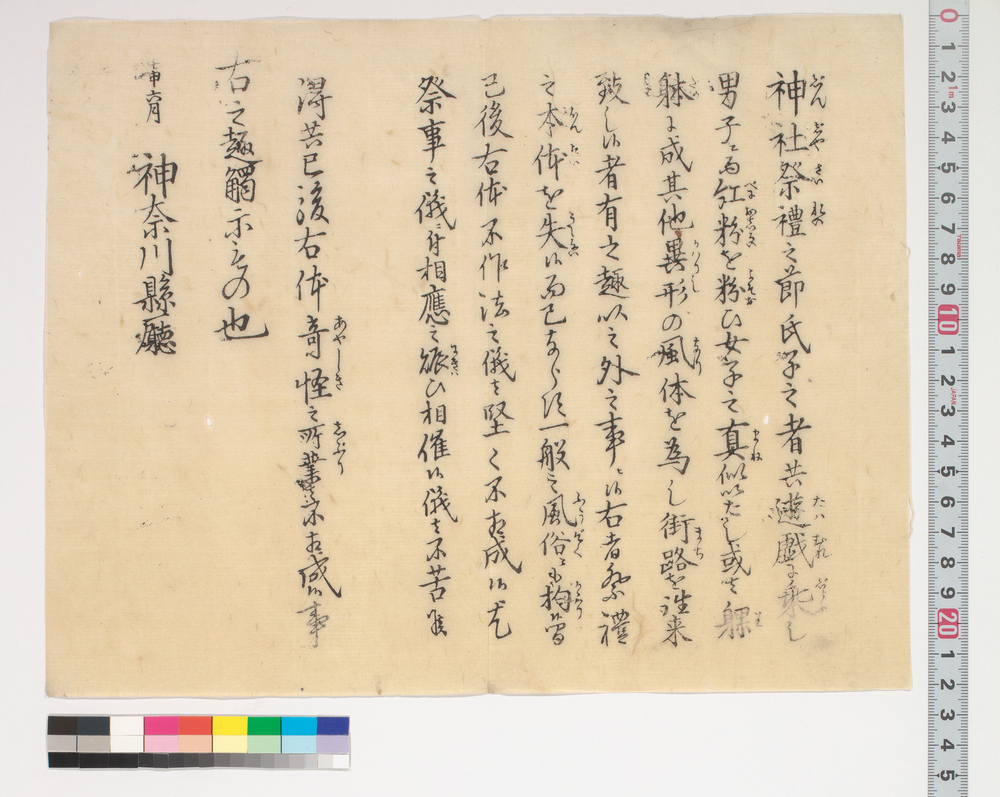 神社祭禮之節氏子之者共遊戯ニ乗し
男子ニ而紅粉を粉ひ女子之真似いたし或者裸
躰ニ成其他異形の風体を為し街路を往来
致し候者有之趣以之外之事ニ候右者祭禮
之本体を失候而已ならす一般之風俗ニも拘候間
已後右体不作法之儀者堅く不相成候尤
祭事之儀ニ付相應之賑ひ相催候儀者不苦候
得共已後右体奇怪之所業不相成候事
右之趣觸示もの也
壬申六月
神奈川縣廳
0 1 2 3 4 5 6 7 8 9 10 1 2 3 4 5 6 7 8 9 20 1 2 3 4 5
1m
JAPAN